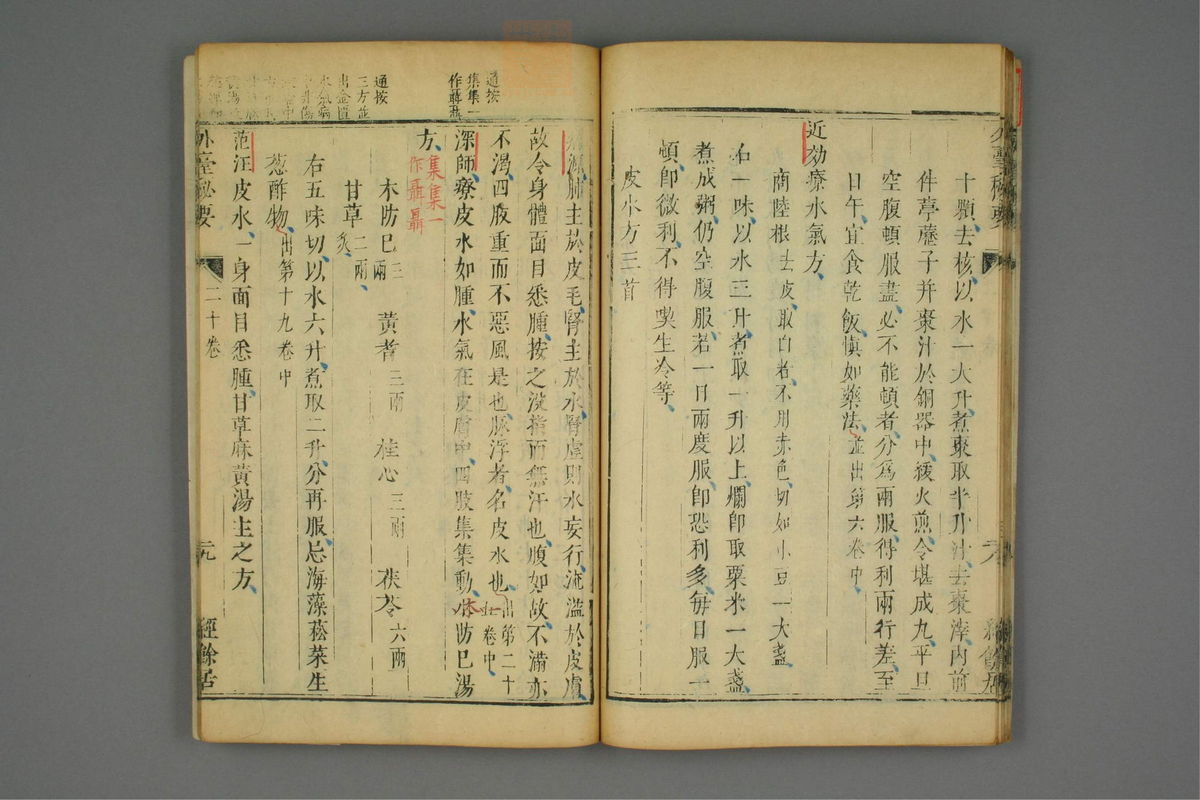 十顆去核以水一大升煮棗取半升汁去棗滓內前
件葶藶子并棗汁於銅器中緩火煎令堪成丸平旦
空腹頓服盡必不能頓者分爲兩服得利兩行差至
日午宜食乾飯愼如藥法並出第六卷中
近効療水氣方
商陸根去皮取白者不用赤色切如小豆一大盞
右一味以水三升煮取一升以上爛卽取粟米一大盞
煮成粥仍空腹服若一日兩度服卽恐利多每日服一
頓卽微利不得喫生冷等
皮水方三首
通按
集集一
作聶聶
病源肺主於皮毛腎主於水腎虛則水妄行流溢於皮膚
故令身體面目悉腫按之沒指而無汗也腹如故不滿亦
不渴四肢重而不惡風是也脈浮者名皮水也出第二十
卷中
深師療皮水如腫水氣在皮膚中四肢集集動木防已湯
方集集一
作聶聶
木防已三兩 黃耆三兩 桂心三兩 茯苓六兩
甘草二兩炙
通按
三方並
出金匱
水氣病
右五味切以水六升煮取二升分再服忌海藻菘菜生
葱酢物出第十九卷中
范汪皮水一身面目悉腫甘草麻黃湯主之方
外臺秘要 二十卷 二九 經餘居